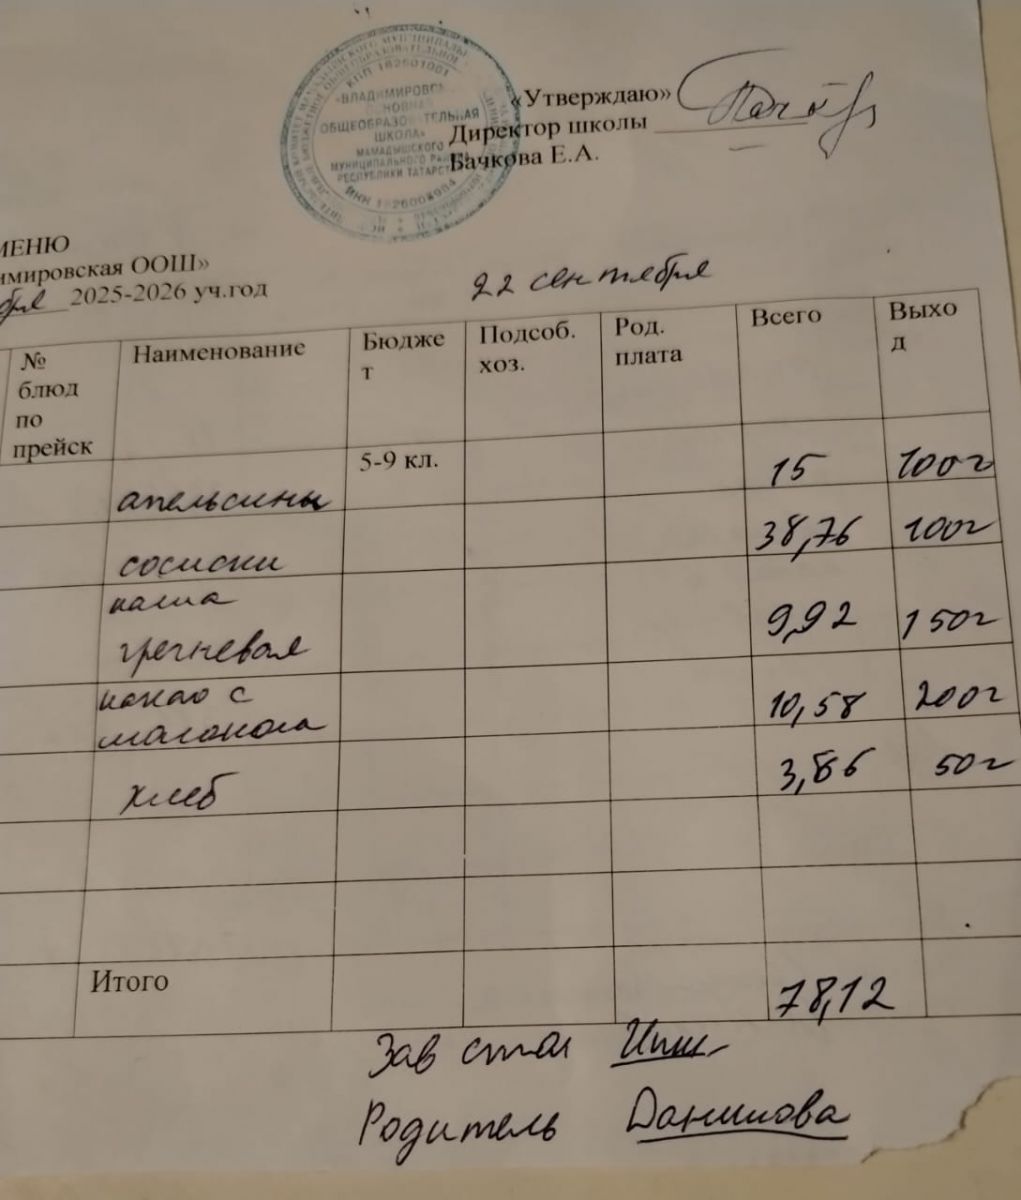 КПП 162601001
«ВЛАДИМИРОВС
НОВНА
ОБЩЕОБРАЗОВАТЕЛЬНАЯ
ШКОЛА»
МАМАДЫШСКОГО
МУНИЦИПАЛЬНОГО РАЙОНА
РЕСПУБЛИКИ ТАТАРСТ
«Утверждаю»
Директор школы
Бачкова Е.А.
МЕНЮ
имировская ООШ»
бря 2025-2026 уч.год
22 сентября
№ блюд по прейск Наименование Бюджет Подсоб. хоз. Род. плата Всего Выход
5-9 кл.
апельсины 15 100г
сосиски 38,76 100г
каша
гречневая 9,92 150г
какао с
молоком 10,58 200г
хлеб 3,86 50г
Итого 78,12
Зав стол
Родитель Данилова